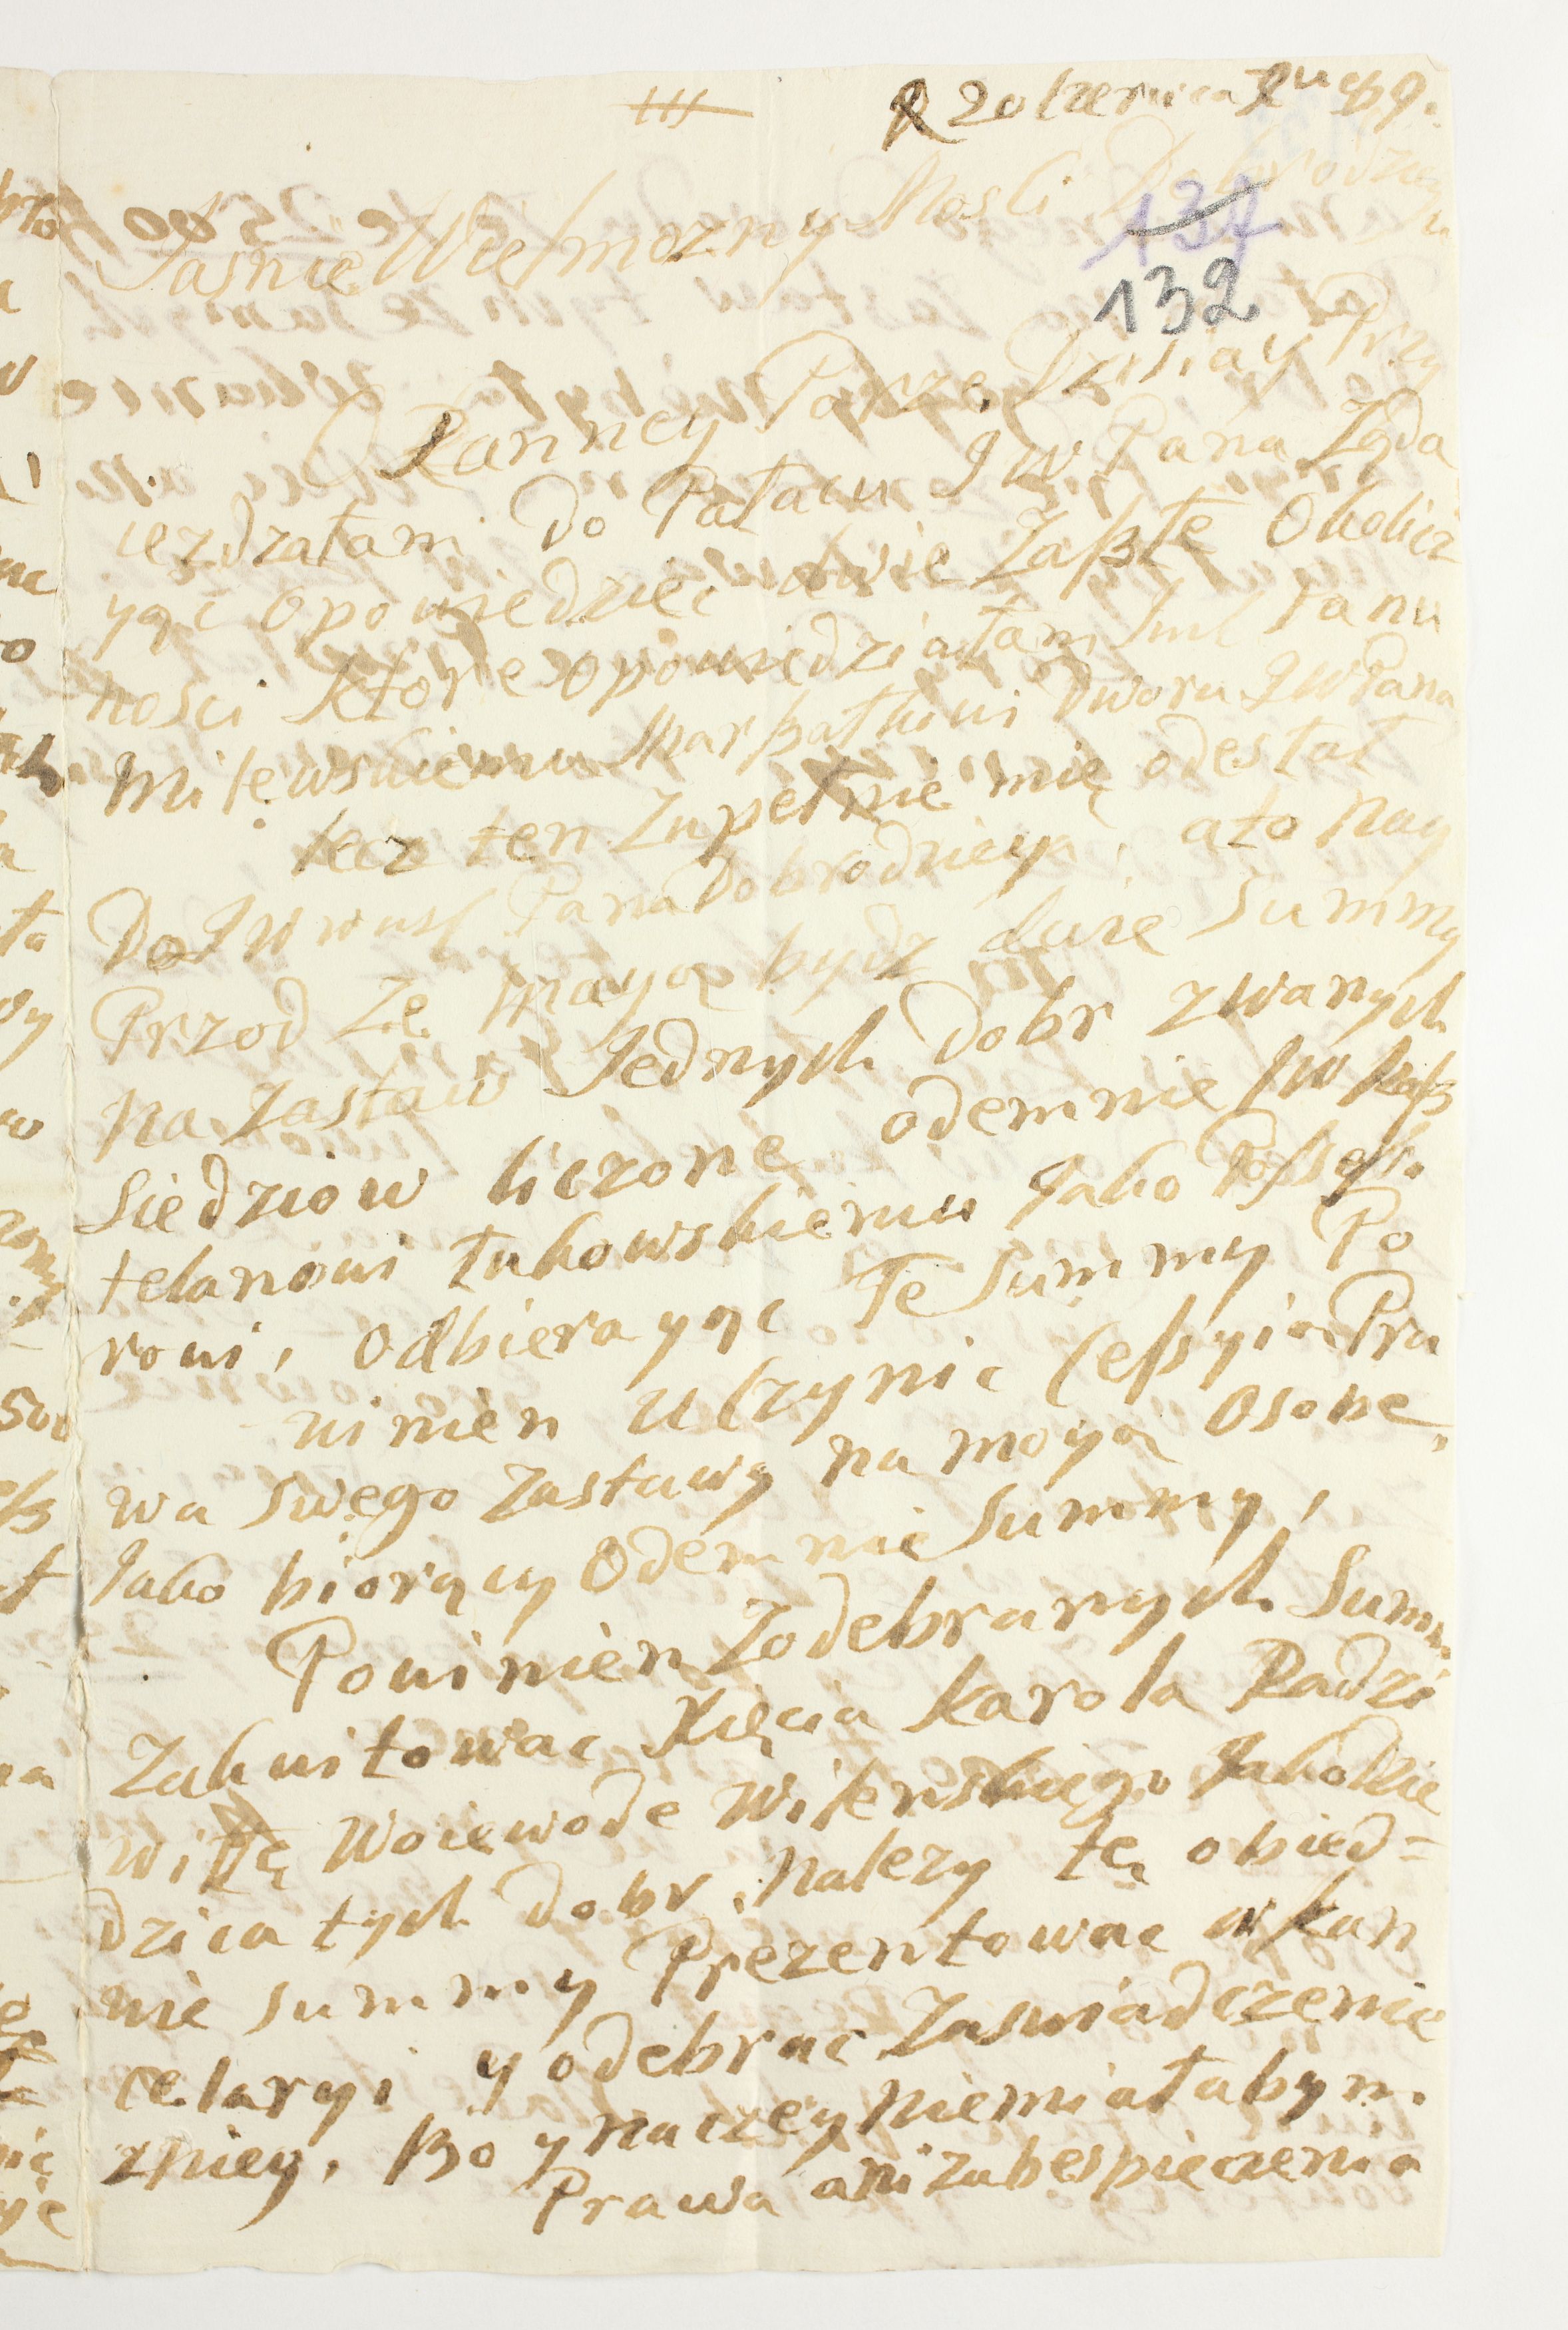 R 20 Czerwca
137
132
Jasnie Wielmozny Mosci Dobrodzieju
Ranney Porze Dzisiay Przy
iezdzałam do Pałacu JW Pana Żąda
yąc opowiedziec dwie Zaszłe Okolicz
nosci ktore opowiedziałam Jmc Panu
Milewskiemu Marszałkowi Dworu JW Pana
lecz ten Zupełnie mię odesłał
Do JW Pana Dobrodzieya, a to Nay
Przod Ze Maya bydz dwie Summy
Na Zastaw Jednych Dobr zwanych
Siedziow liczone odemnie JW Kasz
telanowi Łukowskiemu Jako Possesso
rowi, Odbierayąc Te Summy Po
winien Uczynic Cessyia Pra
wa swego Zastawy na moya Osobe,
Jako biorący Odemnie Summy,
Powinien Zodebranych Summ
Zakwitowac Xięcia Karola Radzi
wiłłę Woiewode Wilenskiego Jako Dzie
dzica tych Dobr, Nalezy tę obied=
nie summy Prezentowac w Kan
celaryi y odebrac Zaswiadczenie
zniey, Bo ynaczey Niemiałabym
Prawa ani zabespieczenia